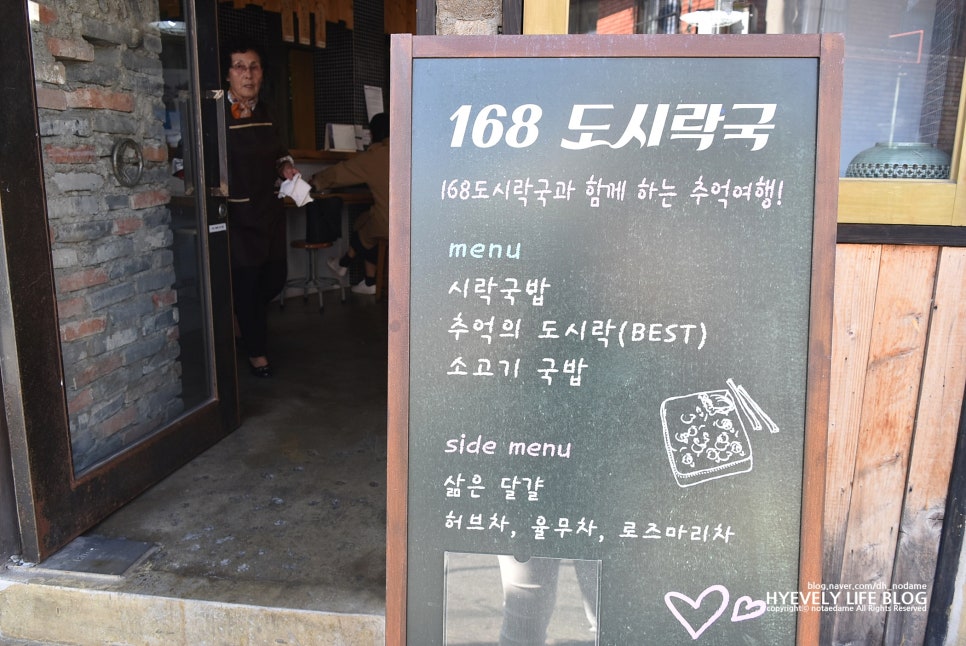 168 도시락국
168도시락국과 함께 하는 추억여행!
menu
시락국밥
추억의 도시락(BEST)
소고기 국밥
side menu
삶은 달걀
허브차, 율무차, 로즈마리차
blog.naver.com/dh_nodame
HYEVELY LIFE BLOG
copyrightⓒ notaedame All Rights Reserved